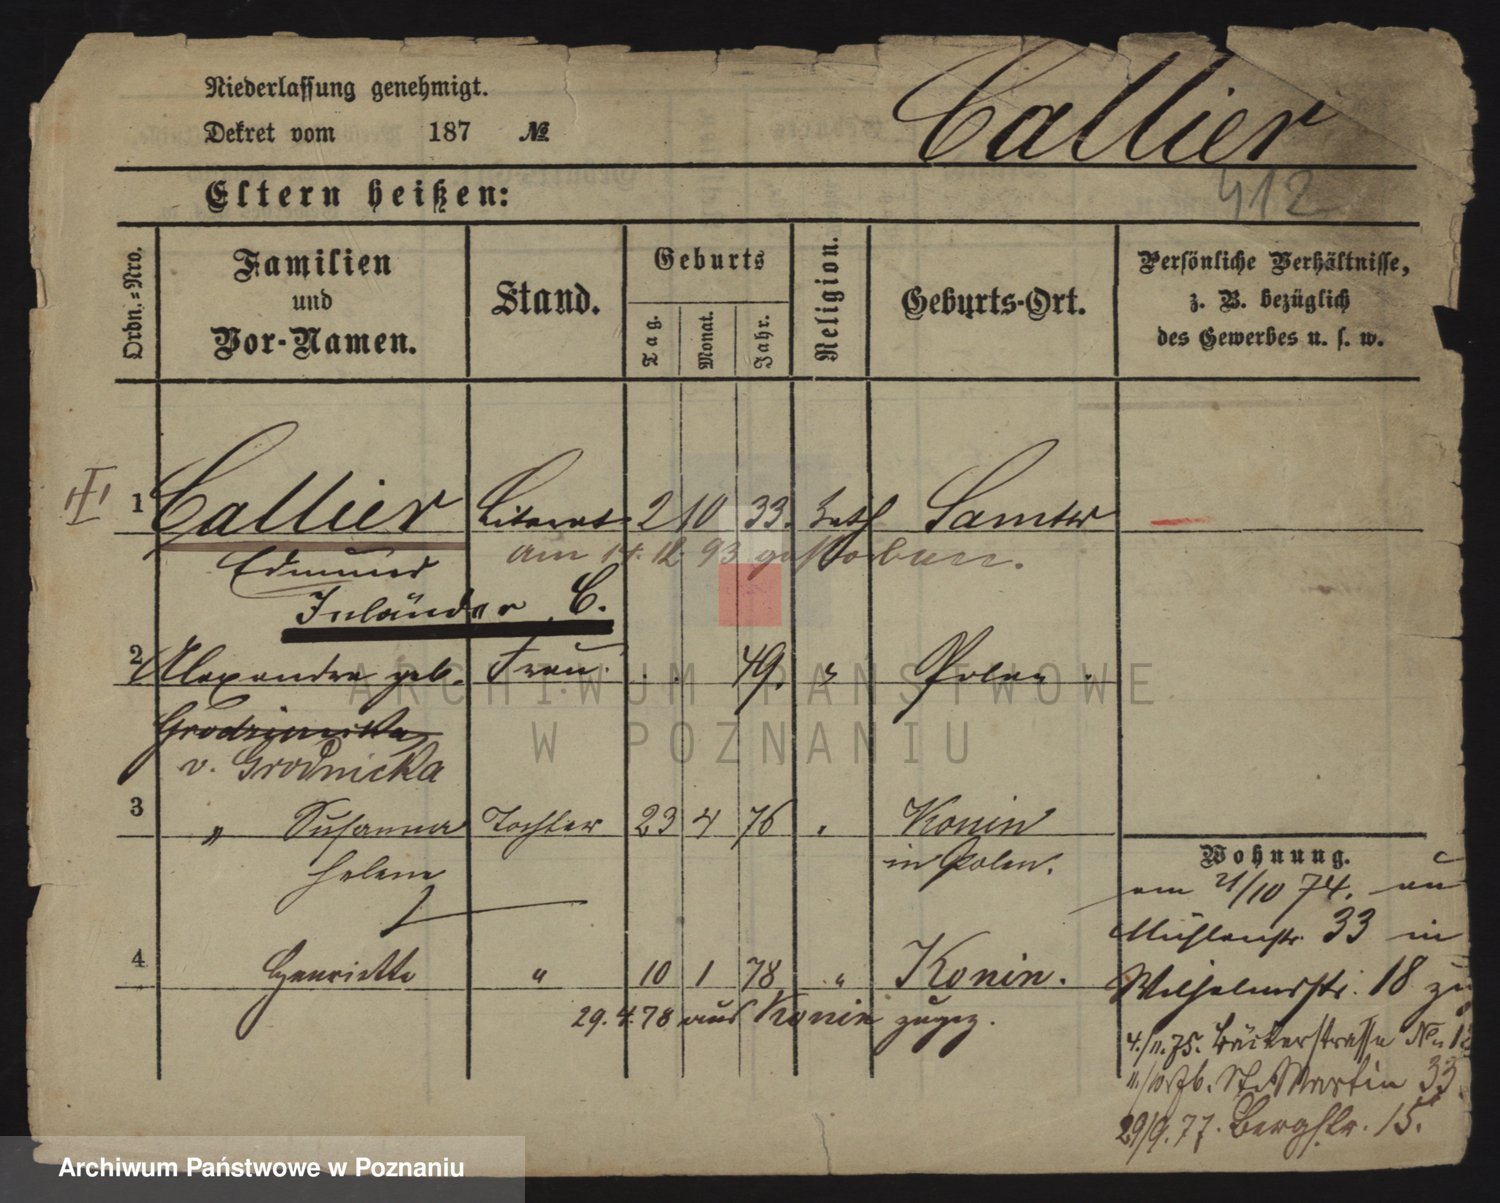 Niederlassung genehmigt.
Dekret vom 187 №
Callier
412
Eltern heißen:
Ordn.-Nro.
Familien und Vor-Namen.
Stand.
Geburts
Tag.
Monat.
Jahr.
Religion.
Geburts-Ort.
Persönliche Verhältnisse, z. B. bezüglich des Gewerbes u. s. w.
1 Callier Literat 2 10 33. kath Samter
am 14. 12 93 gestorben.
Edmund
Inländer C.
2 Alexandra geb. Frau. 49. " Polen.
Grodzinska
v. Grodnicka
3 " Susanna Tochter 23 4 76 " Konin
Helene in Polen.
4 Henriette " 10 1 78 " Konin.
29.4.78 aus Konin zugez.
Wohnung.
am 21/10 74. au
Mühlenstr. 33 in
Wilhelmstr. 18 zu
4./11.75. Bäckerstrasse No
St. Martin 33.
29/9.77. Bergstr. 15.
ARCHIWUM PAŃSTWOWE
W POZNANIU
Archiwum Państwowe w Poznaniu